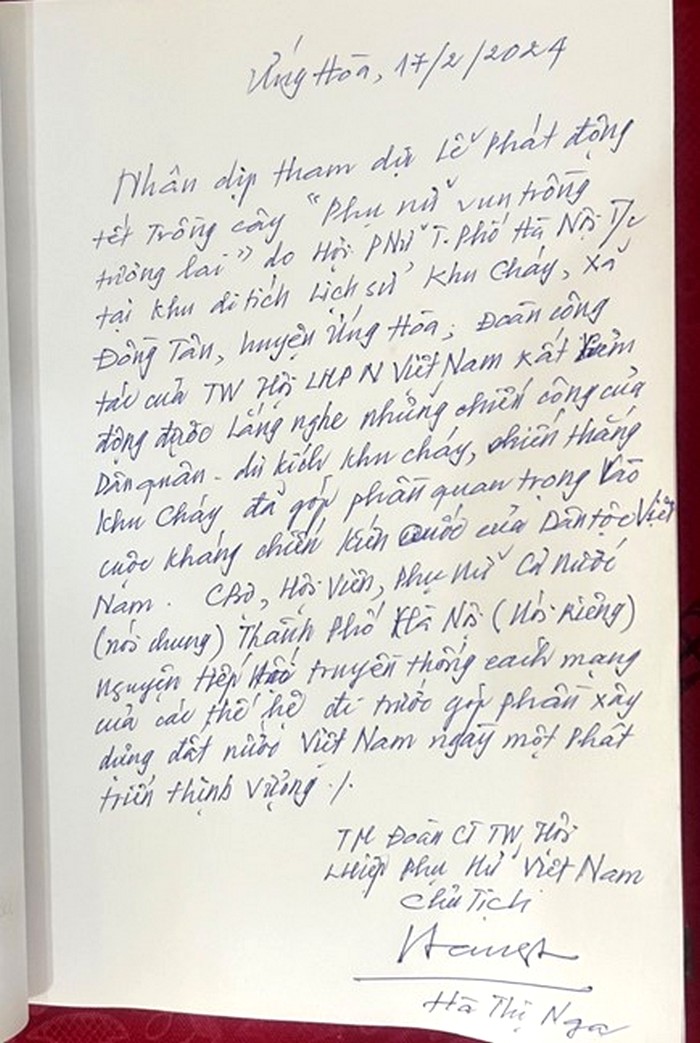 Ứng Hòa, 17/2/2024
Nhân dịp tham dự Lễ phát động
tết trồng cây "Phụ nữ vun trồng
tương lai" do Hội PNữ T. Phố Hà Nội T/c
tại khu di tích Lịch sử Khu Cháy, xã
Đồng Tân, huyện Ứng Hòa; Đoàn công
tác của TW Hội LHPN Việt Nam rất cảm
động được Lắng nghe những chiến công của
Dân quân - du kích khu cháy, chiến thắng
Khu Cháy đã góp phần quan trọng vào
cuộc kháng chiến kiến quốc của Dân tộc Việt
Nam. CBộ, Hội Viên, Phụ Nữ Cả Nước
(nói chung) Thành Phố Hà Nội (Nói Riêng)
nguyện tiếp truyền thống cách mạng
của các thế hệ đi trước góp phần xây
dựng đất nước Việt Nam ngày một phát
triển thịnh vượng ./.
TM Đoàn CT TW Hội
LHiệp Phụ Nữ Việt Nam
Chủ Tịch
Hà Thị Nga